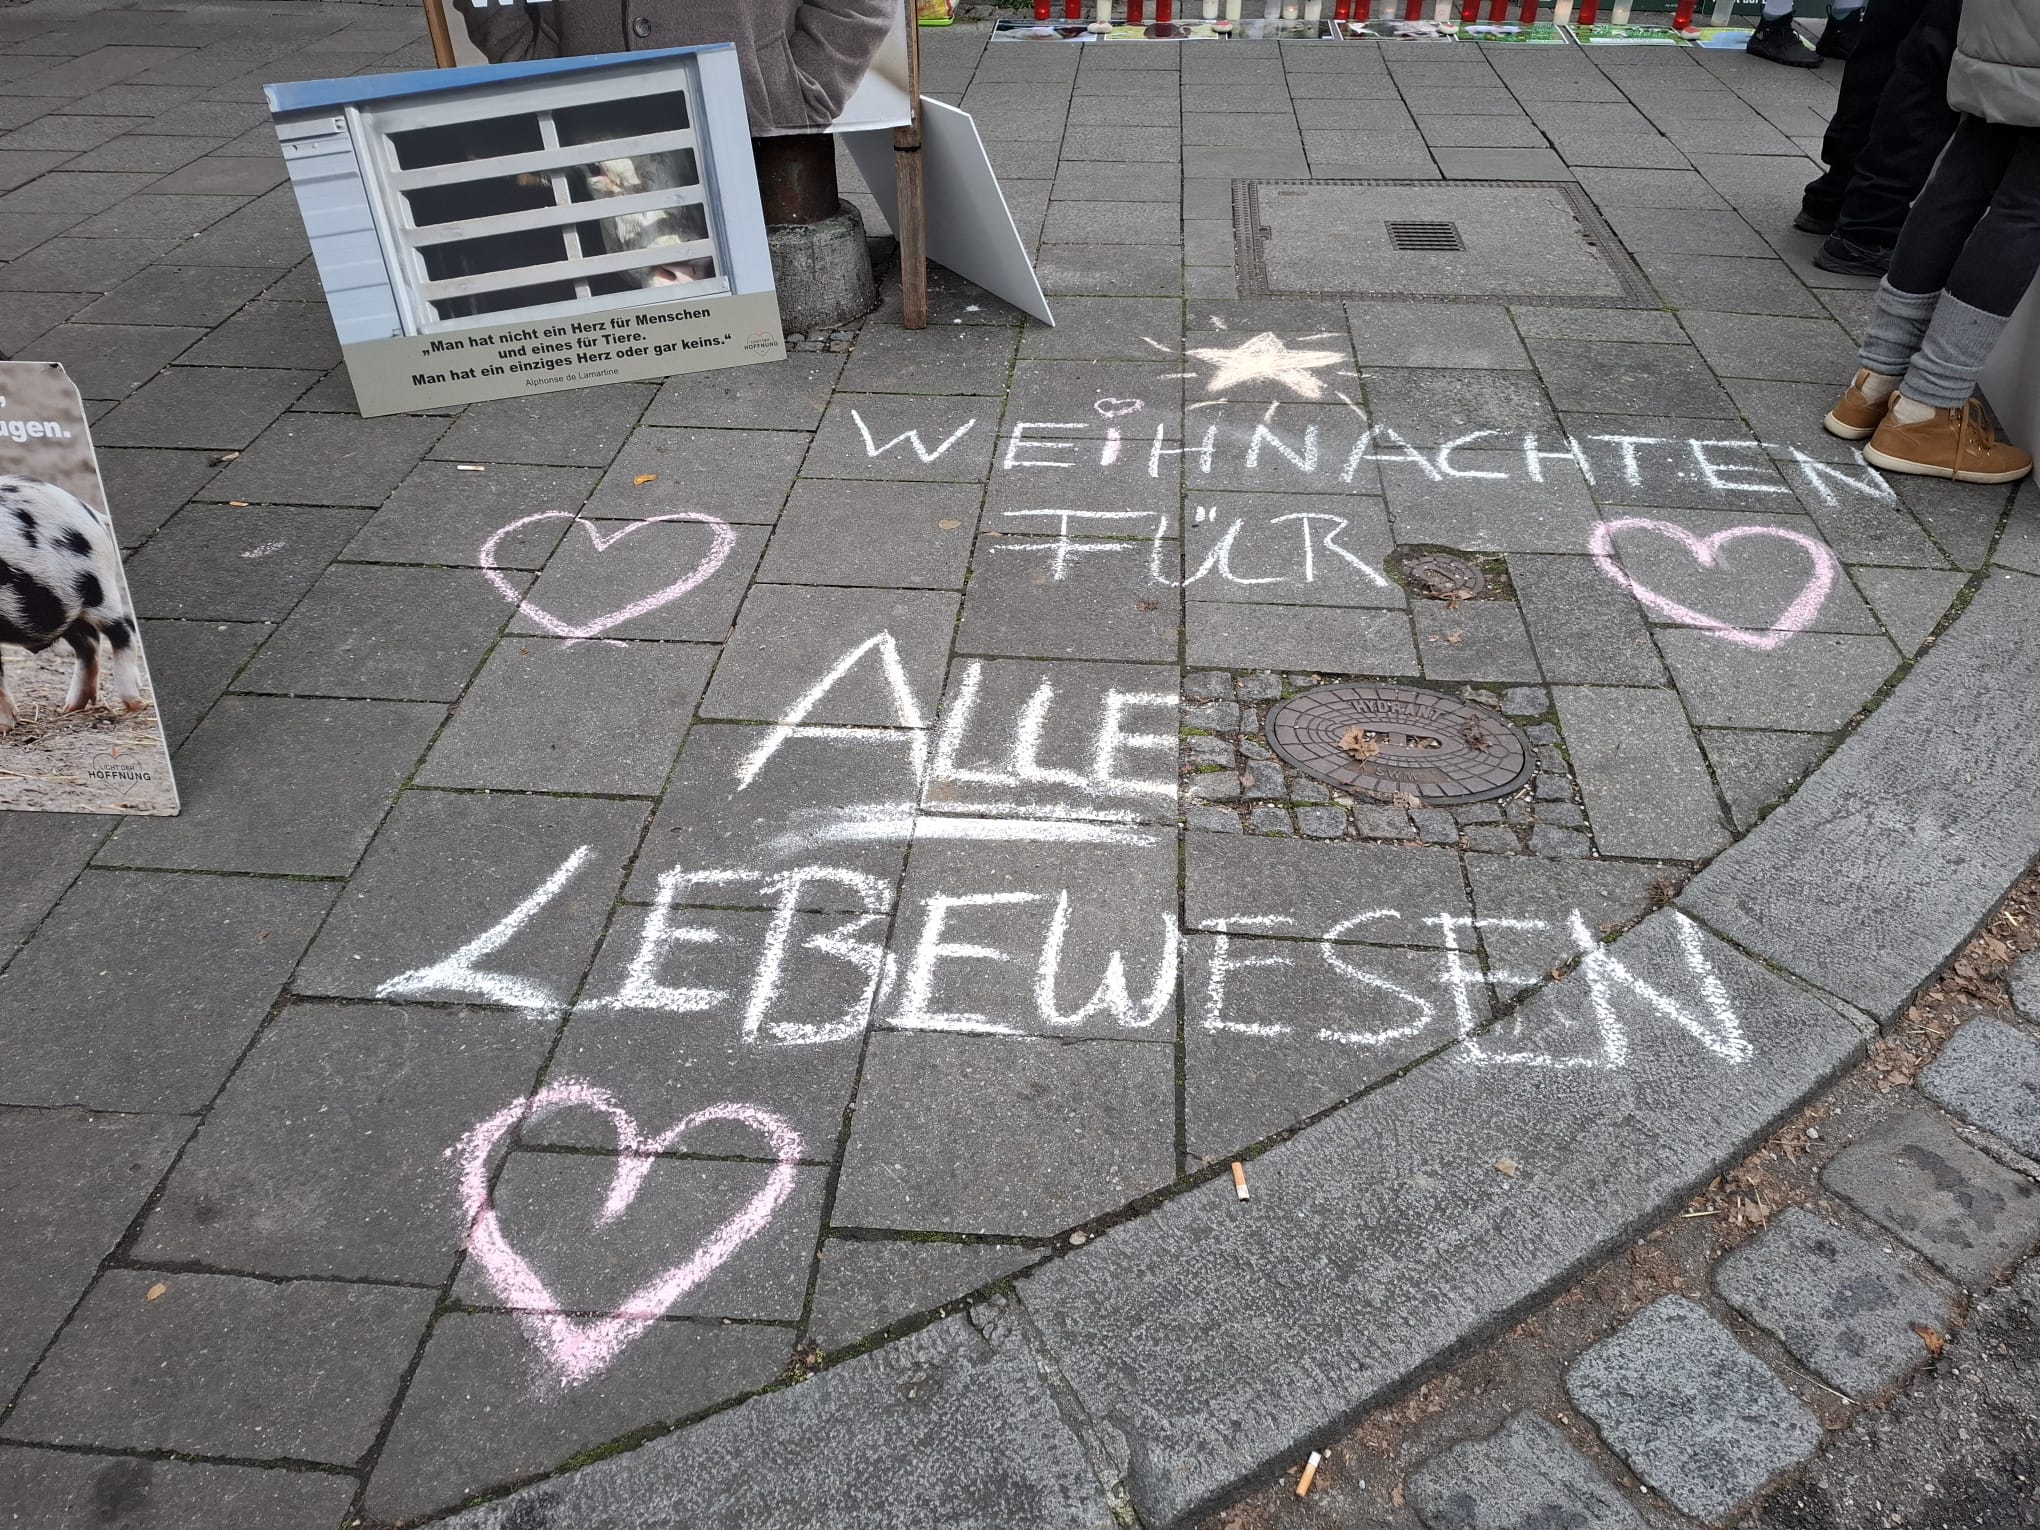 „Man hat nicht ein Herz für Menschen
und eines für Tiere.
Man hat ein einziges Herz oder gar keins.“
Alphonse de Lamartine
LICHT DER
HOFFNUNG
LICHT DER
HOFFNUNG
WEiHNACHTEN
FÜR
ALLE
LEBEWESEN
HYDRANT
SWM